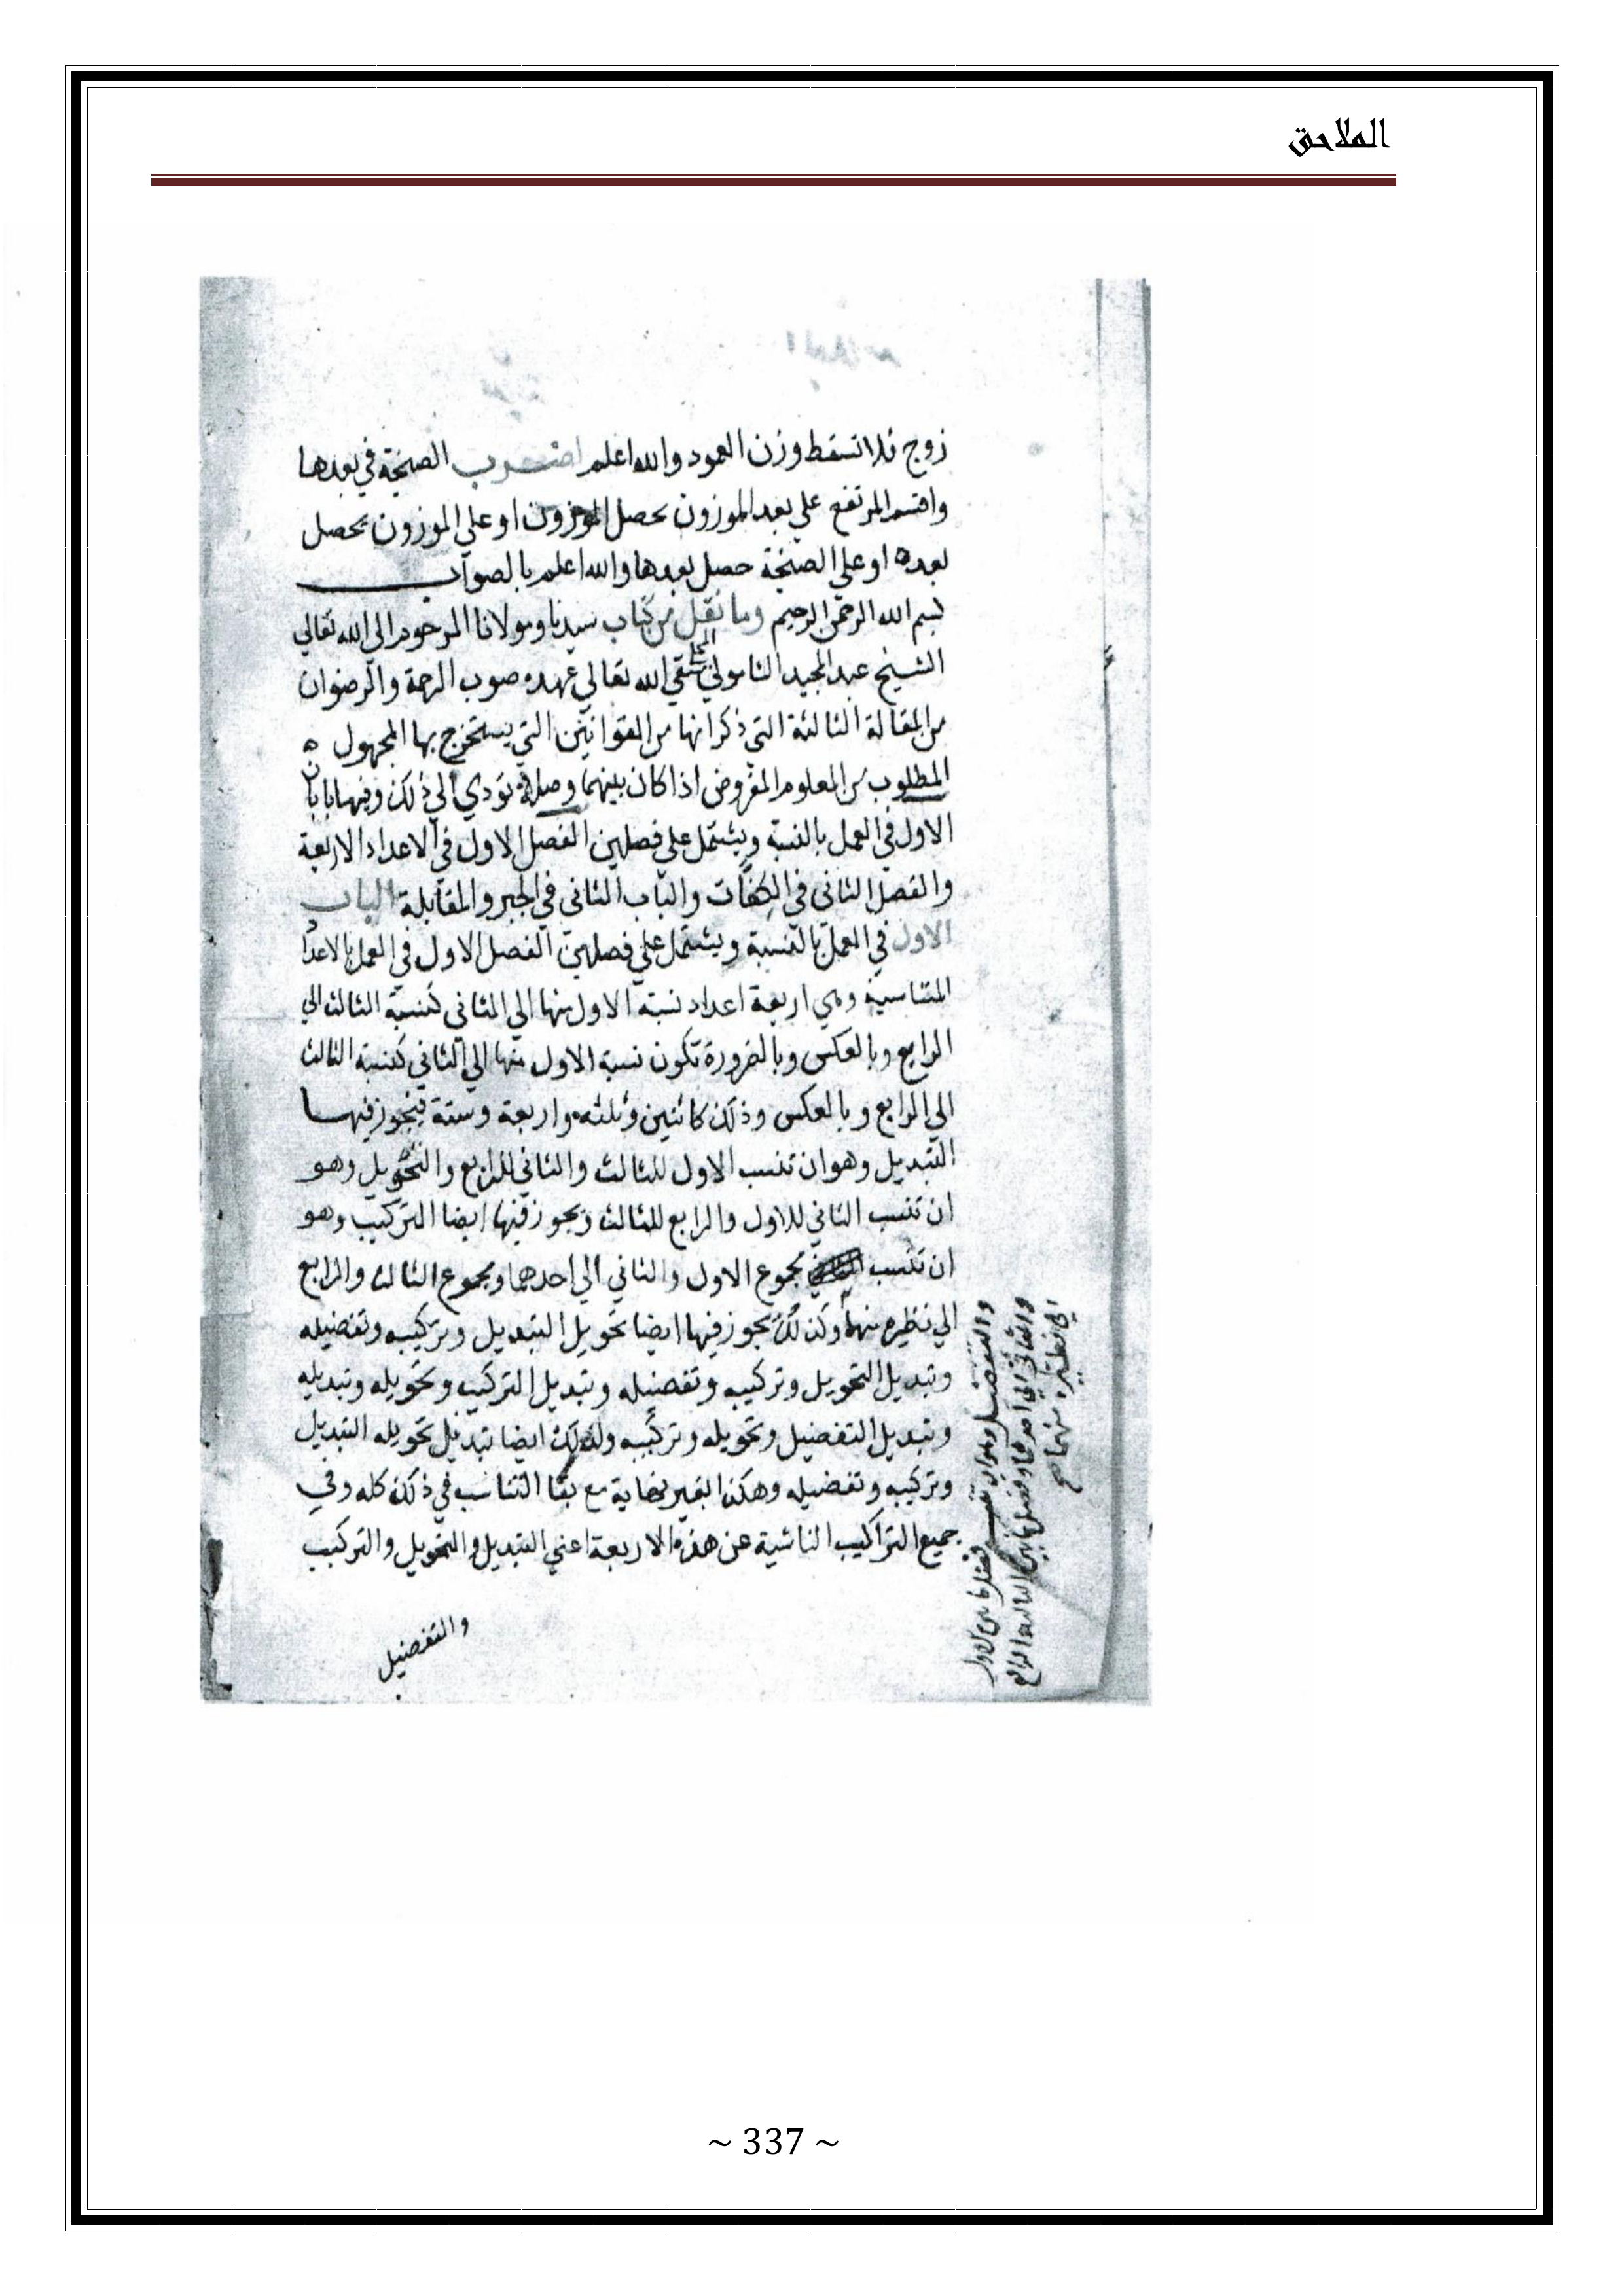 الملاحق
زوج فلا تسقط وزن العمود والله اعلم اضرب الصنجة في بعدها
واقسم المرتفع علي بعد الموزون يحصل الموزون او علي الموزون يحصل
بعده او علي الصنجة حصل بعدها والله اعلم بالصواب
بسم الله الرحمن الرحيم وما نقل من كتاب سيدنا ومولانا المرحوم الى الله تعالي
الشيخ عبد المجيد السامولي سقي الله تعالي عهده صوب الرحمة والرضوان
من المقالة الثالثة التي ذكر انها من القوانين التي يستخرج بها المجهول
المطلوب من المعلوم المفروض اذا كان بينهما وصلة تودي الي ذلك وفيها بابان
الاول في العمل بالنسبة ويشتمل علي فصلين الفصل الاول في الاعداد الاربعة
والفصل الثاني في الكفات والباب الثاني في الجبر والمقابلة الباب
الاول في العمل بالنسبة ويشتمل علي فصلين الفصل الاول في العمل بالاعداد
المتناسبة وهي اربعة اعداد نسبة الاول منها الي الثاني كنسبة الثالث الي
الرابع وبالعكس وبالضرورة تكون نسبة الاول منها الي الثاني كنسبة الثالث
الي الرابع وبالعكس وذلك كاثنين وثلثه واربعة وستة فيجوز فيها
التبديل وهو ان تنسب الاول للثالث والثاني للرابع والتحويل وهو
ان تنسب الثاني للاول والرابع للثالث ويجوز فيها ايضا التركيب وهو
ان تنسب مجموع الاول والثاني الي احدهما ومجموع الثالث والرابع
الي نظيره منهما وكذلك يجوز فيها ايضا تحويل التبديل وتركيبه وتفضيله
وتبديل التحويل وتركيبه وتفضيله وتبديل التركيب وتحويله وتبديله
وتبديل التفضيل وتحويله وتركيبه وكذلك ايضا تبديل تحويله التبديل
وتركيبه وتفضيله وهكذا لغير نهاية مع بقا التناسب في ذلك كله وفي
جميع التراكيب الناشية عن هذه الاربعة اعني التبديل والتحويل والتركيب
والتفضيل
والتفضيل وهو ان تنسب فضل ما بين الاول
والثاني الي احدهما وفضل ما بين الثالث والرابع
الي نظيره منهما صح
~ 337 ~